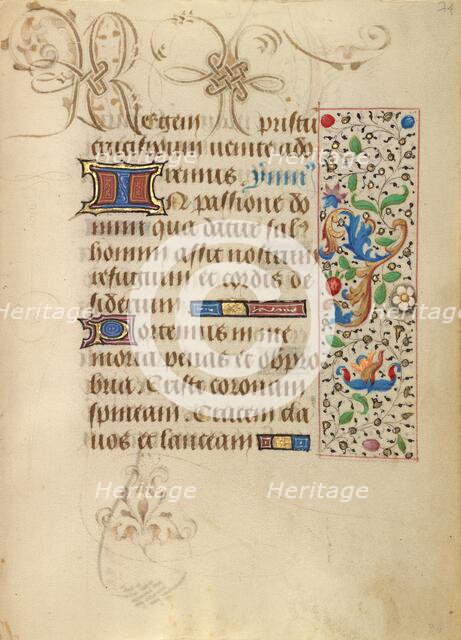 74
Regem xpristi
crucifixum venite ado
remus ymn
In passione do
mini qua datur sal
homini assit nostrum
refugium et cordis de
siderium
Portemus in me
moria penas et obpro
bria. Cristi coronam
spineam. Crucem cla
vos et lanceam
Heritage Heritage
Heritage Heritage
Heritage Heritage